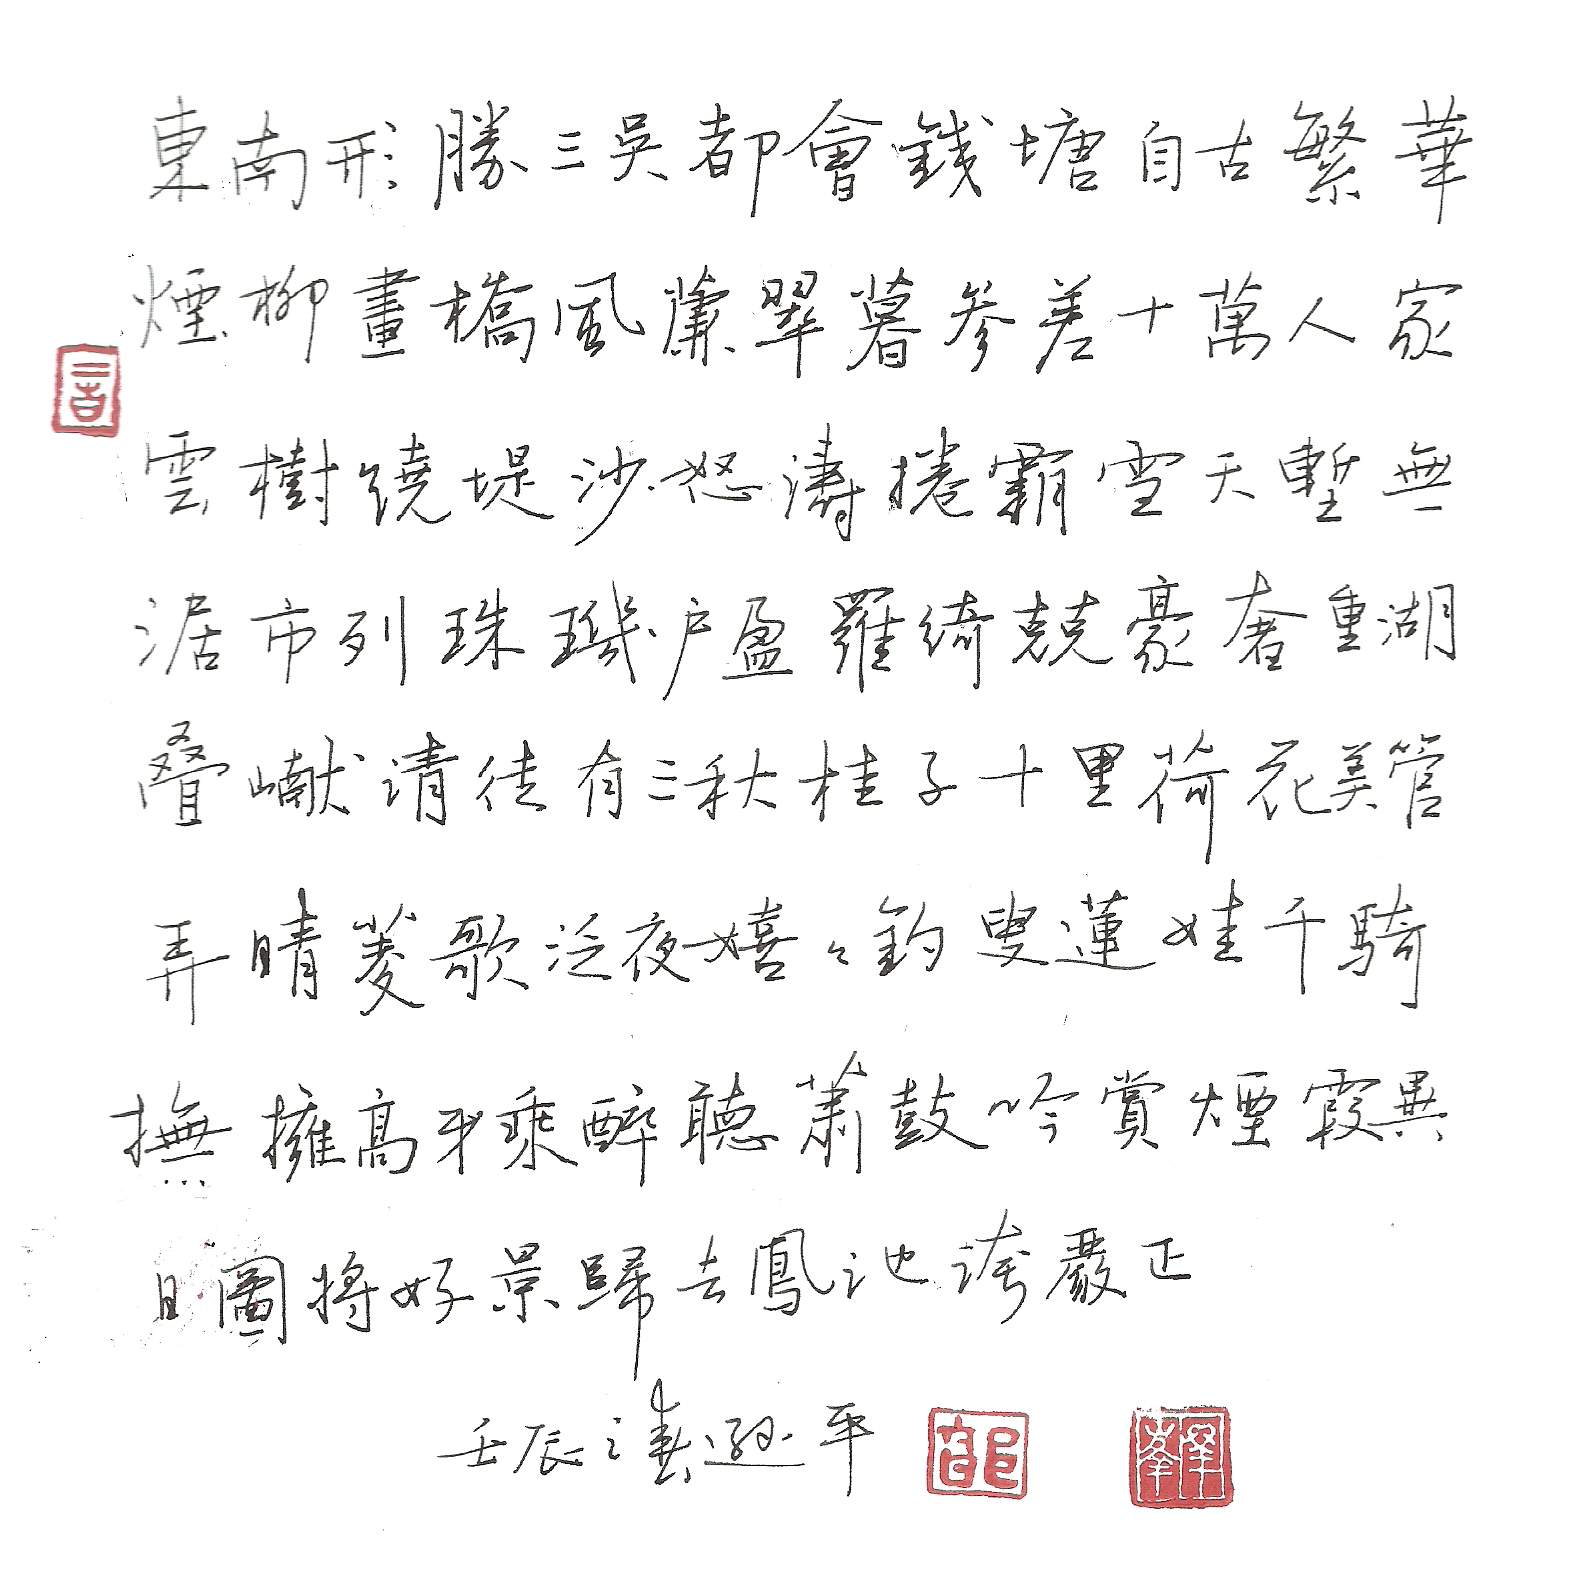 東南形勝三吳都會錢塘自古繁華
煙柳畫橋風簾翠暮參差十萬人家
雲樹繞堤沙怒濤捲霸雪天塹無
涯市列珠璣戶盈羅綺競豪奢重湖
叠巘清佳有三秋桂子十里荷花羌管
弄晴菱歌泛夜嬉々釣叟蓮娃千騎
撫擁高牙乘醉聽蕭鼓吟賞煙霞異
日圖將好景歸去鳳池誇嚴正
壬辰平